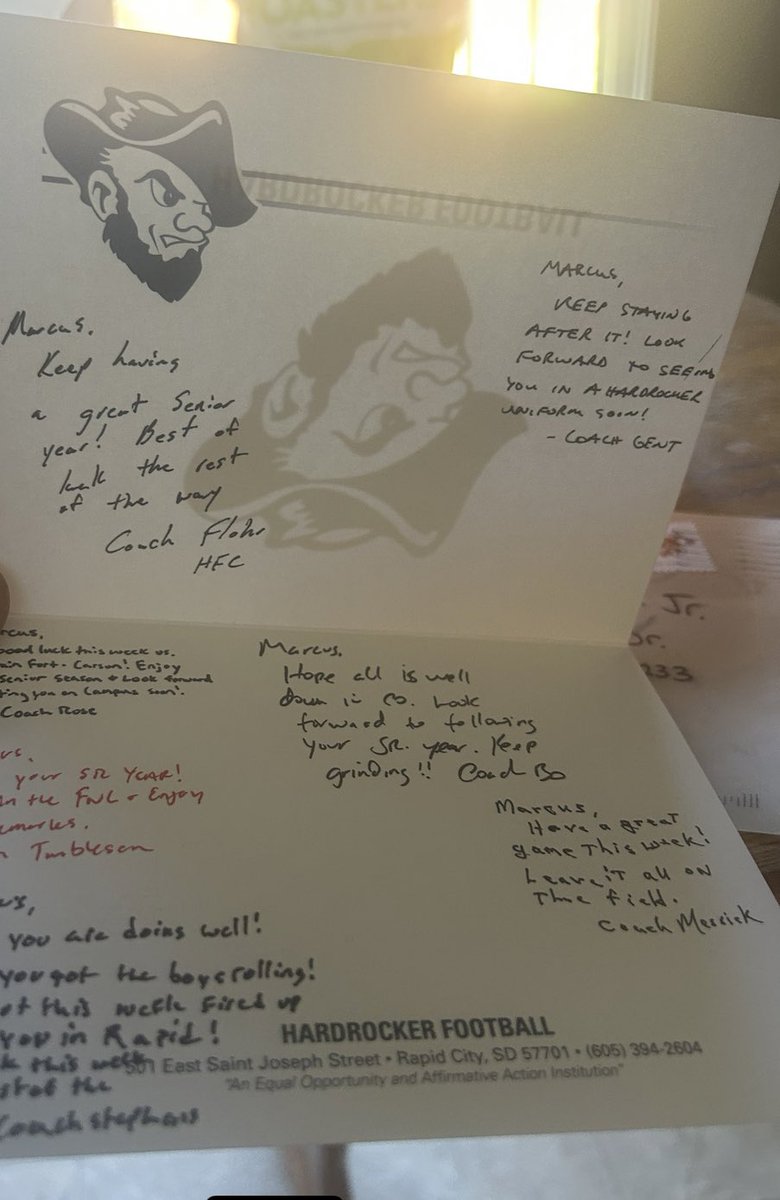 OASTER
HARDROCKER FOOTBALL
Marcus.
Keep having
a great Senior
year! Best of
luck the rest
of the way
Coach Flohr
HFC
MARCUS,
KEEP STAYING
AFTER IT! LOOK
FORWARD TO SEEING
YOU IN A HARDROCKER
UNIFORM SOON!
- COACH GENT
rcus,
ood luck this week vs.
ain Fort-Carson! Enjoy
Senior Season + Look forward
ting you on Campus soon!
Coach Rose
us,
your SR YEAR!
in the FNL + Enjoy
emories.
Tumbleson
Marcus,
Hope all is well
down in CO. Look
forward to following
your SR. year. Keep
grinding!! Coach Bo
Marcus,
Have a great
game This week!
Leave iT all on
The field.
Coach Messick
us,
you are doing well!
you got the boys rolling!
ot this week fired up
you in Rapid!
k this week
the
Coach Stephens
HARDROCKER FOOTBALL
501 East Saint Joseph Street • Rapid City, SD 57701 • (605) 394-2604
"An Equal Opportunity and Affirmative Action Institution"
Jr.
Dr.
233